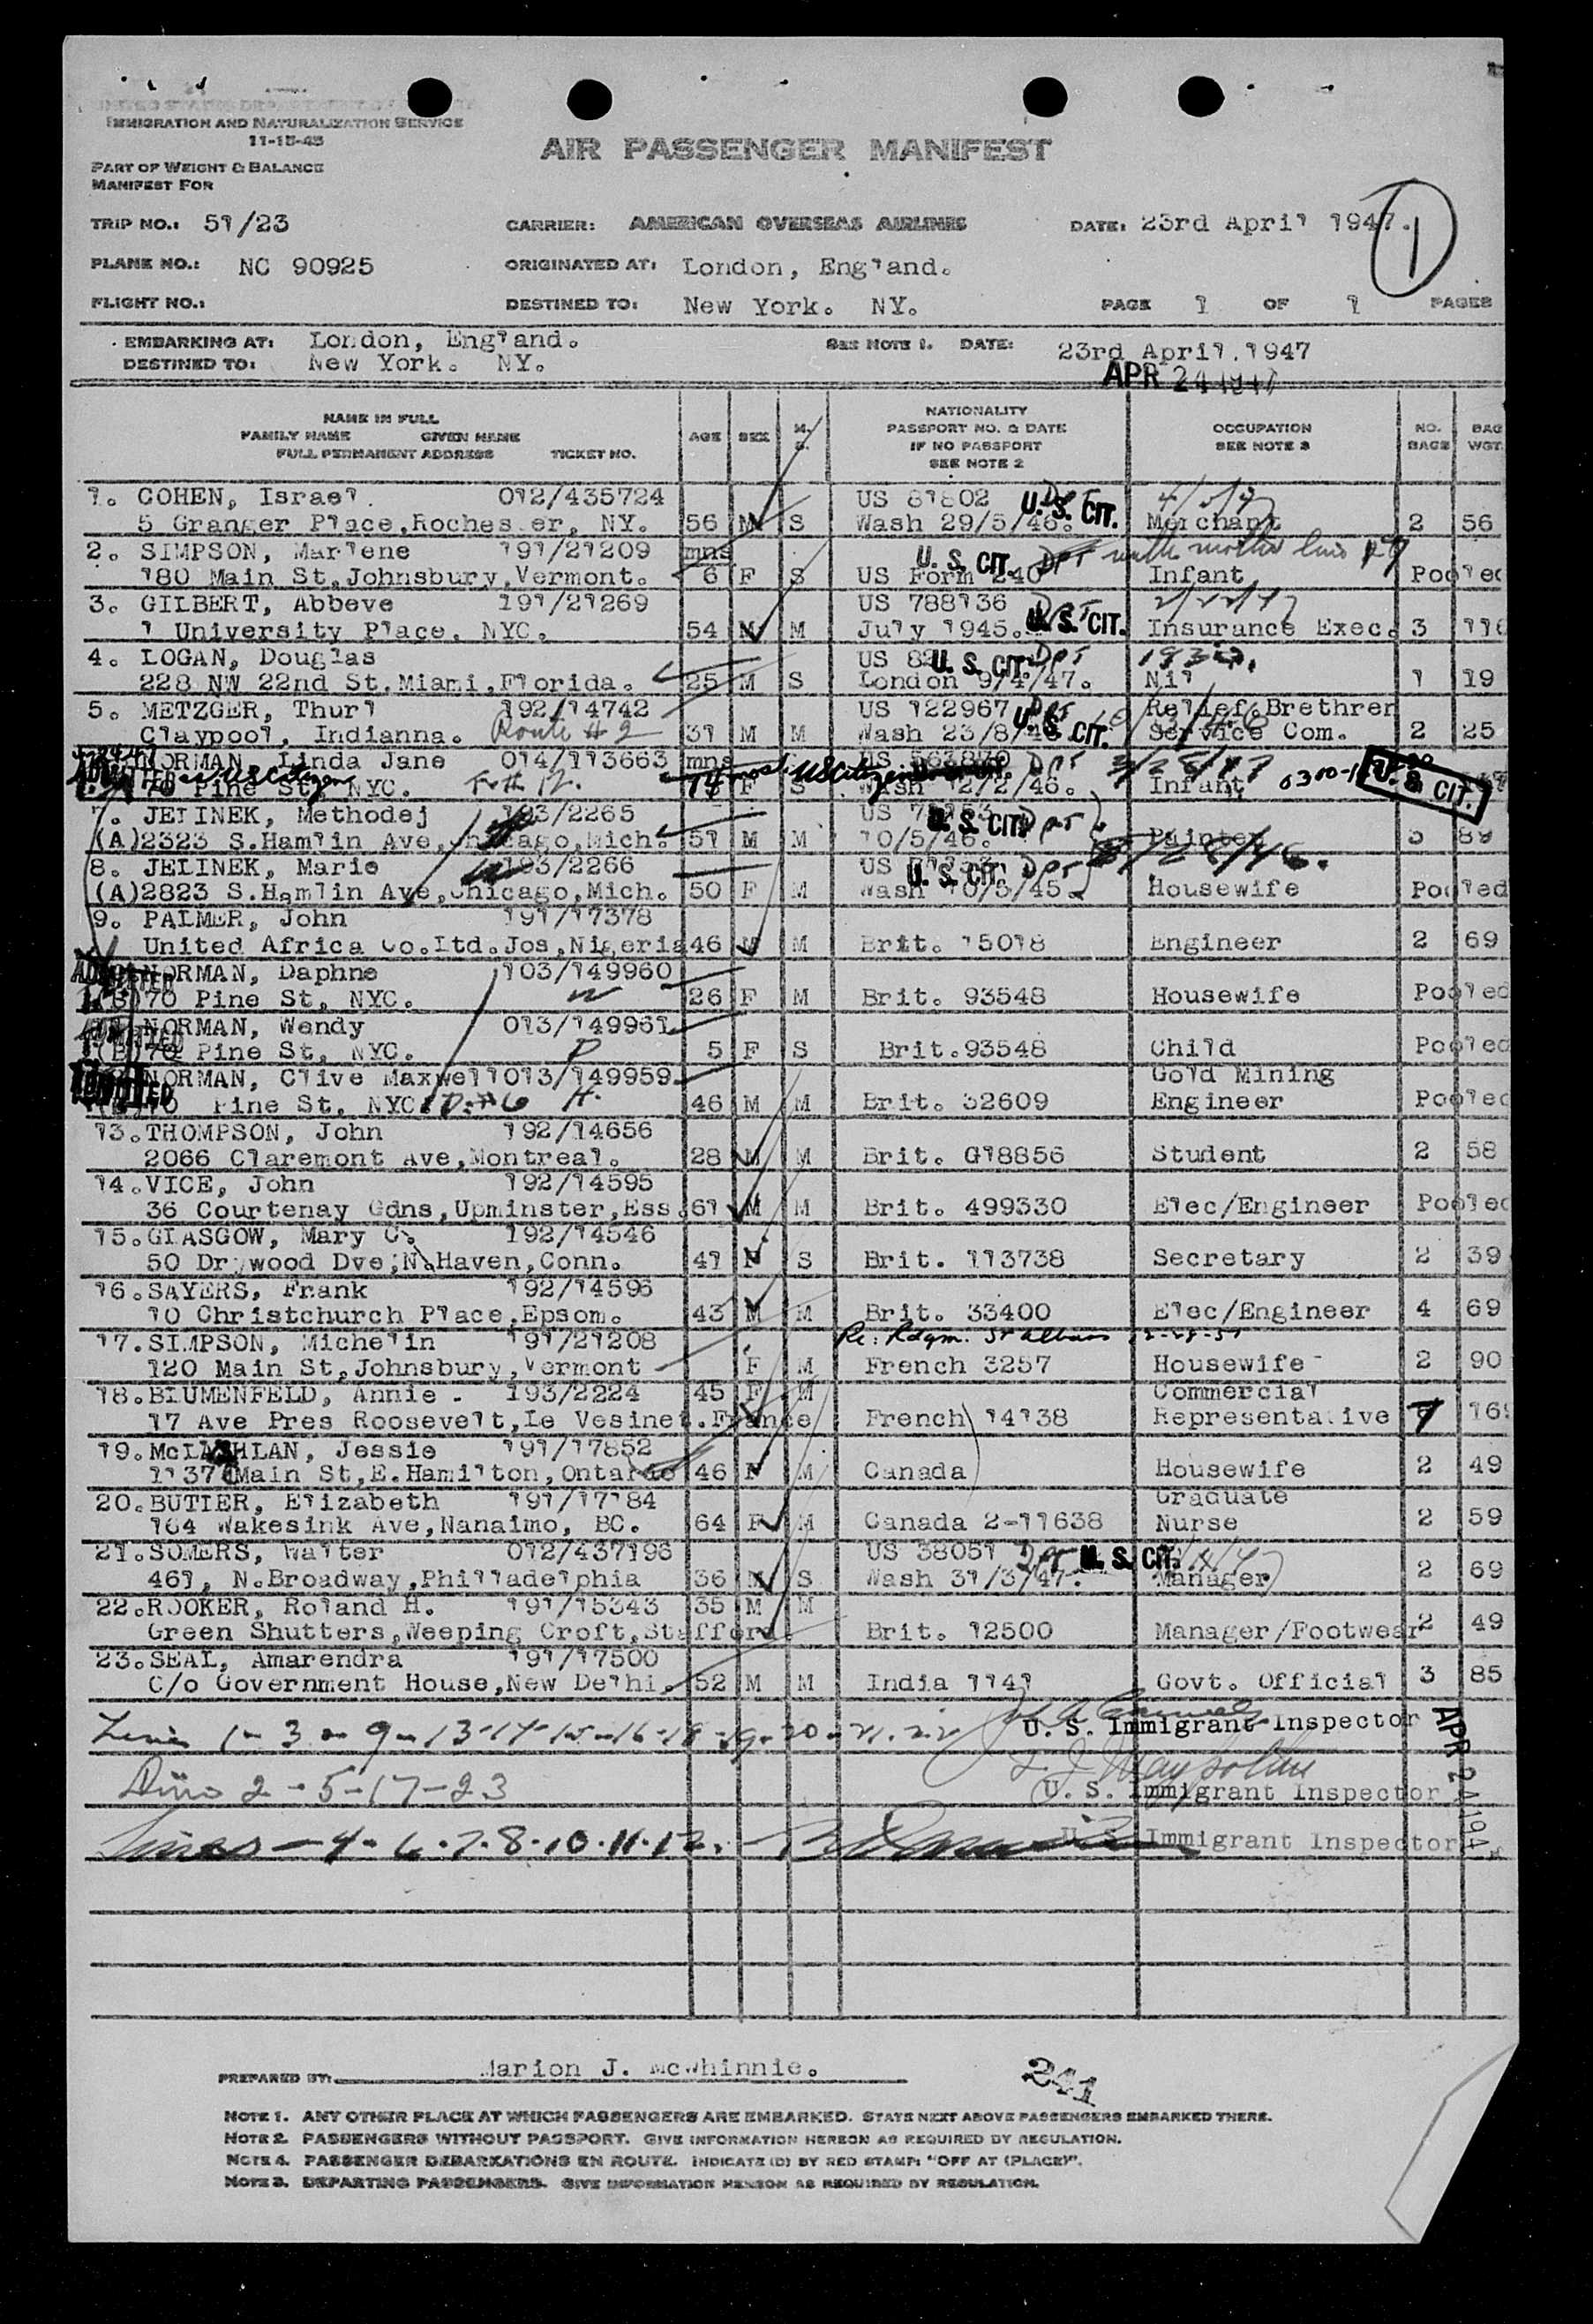 IMMIGRATION AND NATURALIZATION SERVICE
11-15-45
AIR PASSENGER MANIFEST
PART OF WEIGHT & BALANCE
MANIFEST FOR
TRIP NO.: 51/23 CARRIER: AMERICAN OVERSEAS AIRLINES DATE: 23rd April 1947. 1
PLANE NO.: NC 90925 ORIGINATED AT: London, England.
FLIGHT NO.: DESTINED TO: New York. NY. PAGE 1 OF 1 PAGES
EMBARKING AT: London, England. SEE NOTE 1. DATE: 23rd April.1947
DESTINED TO: New York. NY.
APR 24 1947
NAME IN FULL
FAMILY NAME GIVEN NAME
FULL PERMANENT ADDRESS TICKET NO.
AGE SEX M. S.
NATIONALITY
PASSPORT NO. & DATE
IF NO PASSPORT
SEE NOTE 2
OCCUPATION
SEE NOTE 3
NO. BAGS
BAG WGT.
1. COHEN, Israel. 012/435724 US 81802 U.S. CIT.
5 Granger Place,Rochester, NY. 56 M S Wash 29/5/46. Merchant 2 56
2. SIMPSON, Marlene 191/21209 mns U.S. CIT. with mother line 17
180 Main St,Johnsbury,Vermont. 6 F S US Form 240 Infant Pooled
3. GILBERT, Abbeve 191/21269 US 788136
1 University Place, NYC. 54 M M July 1945. U.S. CIT. Insurance Exec. 3 116
4. LOGAN, Douglas US U.S. CIT.
228 NW 22nd St.Miami,Florida. 25 M S London 9/4/47. Nil 1 19
5. METZGER, Thurl 192/14742 US 122967 U.S. CIT. Relief Brethren
Claypool, Indianna. Route #2 31 M M Wash 23/8/46 Service Com. 2 25
NORMAN, Linda Jane 014/113663 mns US
70 Pine St, NYC. 14 mos. US Citizen F S Wash 12/2/46. Infant U.S. CIT.
7. JELINEK, Methodej 193/2265 US U.S. CIT.
(A)2323 S.Hamlin Ave,Chicago,Mich. 51 M M 10/5/46. Painter 3 89
8. JELINEK, Marie 193/2266 US U.S. CIT.
(A)2823 S.Hamlin Ave,Chicago,Mich. 50 F M Wash 10/5/45. Housewife Pooled
9. PALMER, John 191/17378
United Africa Co.Ltd.Jos,Nigeria 46 M M Brit. 15018 Engineer 2 69
NORMAN, Daphne 103/149960
(B)70 Pine St, NYC. 26 F M Brit. 93548 Housewife Pooled
NORMAN, Wendy 013/149961
(B)70 Pine St, NYC. 5 F S Brit.93548 Child Pooled
NORMAN, Clive Maxwell 013/149959 Gold Mining
70 Pine St, NYC. 46 M M Brit. 32609 Engineer Pooled
13.THOMPSON, John 192/14656
2066 Claremont Ave,Montreal. 28 M M Brit. G18856 Student 2 58
14.VICE, John 192/14595
36 Courtenay Gdns,Upminster,Ess. 61 M M Brit. 499330 Elec/Engineer Pooled
15.GLASGOW, Mary C. 192/14546
50 Drywood Dve,N.Haven,Conn. 41 F S Brit. 113738 Secretary 2 39
16.SAYERS, Frank 192/14596
10 Christchurch Place,Epsom. 43 M M Brit. 33400 Elec/Engineer 4 69
17.SIMPSON, Michelin 191/21208 Re: Rdgm. St Albans
120 Main St,Johnsbury,Vermont F M French 3257 Housewife 2 90
18.BLUMENFELD, Annie. 193/2224 45 F M Commercial
17 Ave Pres Roosevelt,Le Vesinet.France French 14138 Representative 7
19.McLACHLAN, Jessie 191/17852
1137 Main St,E.Hamilton,Ontario 46 F M Canada Housewife 2 49
20.BUTLER, Elizabeth 191/17184 Graduate
164 Wakesink Ave,Nanaimo, BC. 64 F M Canada 2-11638 Nurse 2 59
21.SOMERS, Walter 012/437196 US 38051 U.S. CIT.
461, N.Broadway,Philladelphia 36 M S Wash 31/3/47. Manager 2 69
22.ROOKER, Roland H. 191/15343 35 M M
Green Shutters,Weeping Croft,Stafford. Brit. 12500 Manager/Footwear 2 49
23.SEAL, Amarendra 191/17500
C/o Government House,New Delhi. 52 M M India 1141 Govt. Official 3 85
Lines 1-3-9-13-14-15-16-18-19-20-21-22 U. S. Immigrant Inspector
2-5-17-23 U. S. Immigrant Inspector
Lines-4-6-7-8-10-11-12. U. S. Immigrant Inspector
PREPARED BY: Marion J. McWhinnie.
241
NOTE 1. ANY OTHER PLACE AT WHICH PASSENGERS ARE EMBARKED. STATE NEXT ABOVE PASSENGERS EMBARKED THERE.
NOTE 2. PASSENGERS WITHOUT PASSPORT. GIVE INFORMATION HEREON AS REQUIRED BY REGULATION.
NOTE 4. PASSENGER DEBARKATIONS EN ROUTE. INDICATE (D) BY RED STAMP: "OFF AT (PLACE)".
NOTE 3. DEPARTING PASSENGERS. GIVE INFORMATION HEREON AS REQUIRED BY REGULATION.